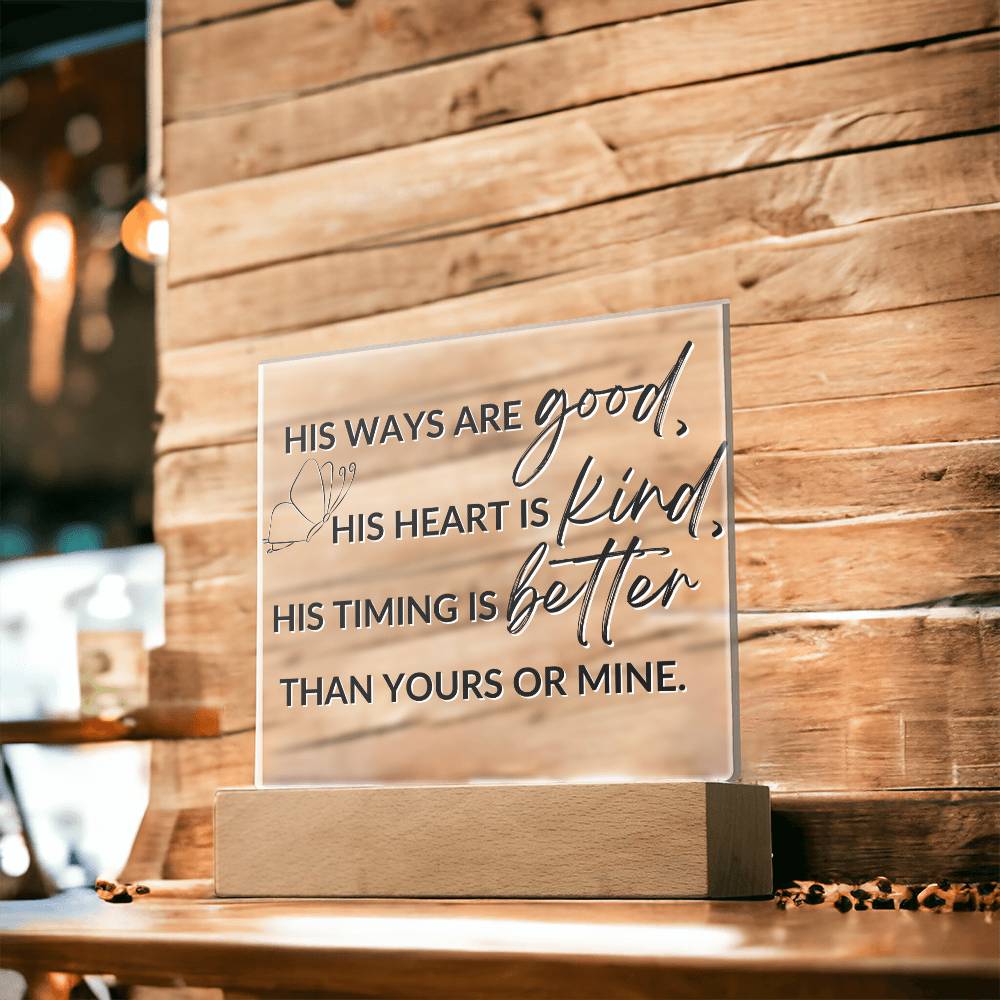 HIS WAYS ARE good,
HIS HEART IS kind,
HIS TIMING IS better
THAN YOURS OR MINE.